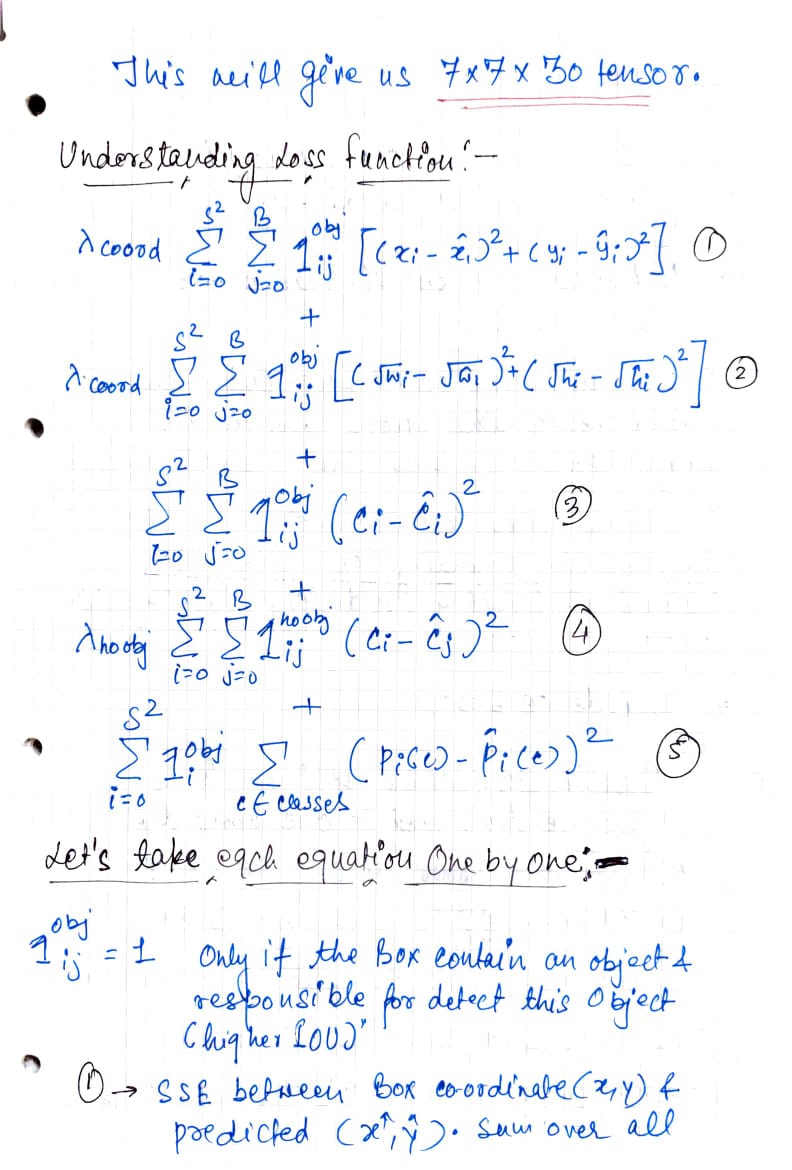 This will give us 7x7x30 tensor.
Understanding Loss function:-
λcoord S² Σ i=0 B Σ j=0 1 obj ij [(xi - x̂i)² + (yi - ŷi)²] ①
+
λcoord S² Σ i=0 B Σ j=0 1 obj ij [(√wi - √ŵi)² + (√hi - √ĥi)²] ②
+
S² Σ i=0 B Σ j=0 1 obj ij (Ci - Ĉi)² ③
+
λnoobj S² Σ i=0 B Σ j=0 1 noobj ij (Ci - Ĉj)² ④
+
S² Σ i=0 1 obj i Σ c∈classes (Pi(c) - P̂i(c))² ⑤
Let's take each equation One by one:-
1 obj ij = 1 Only if the Box contain an object &
responsible for detect this Object
(higher IOU)'
① → SSE between Box co-ordinate(x,y) &
predicted (x̂,ŷ). Sum over all